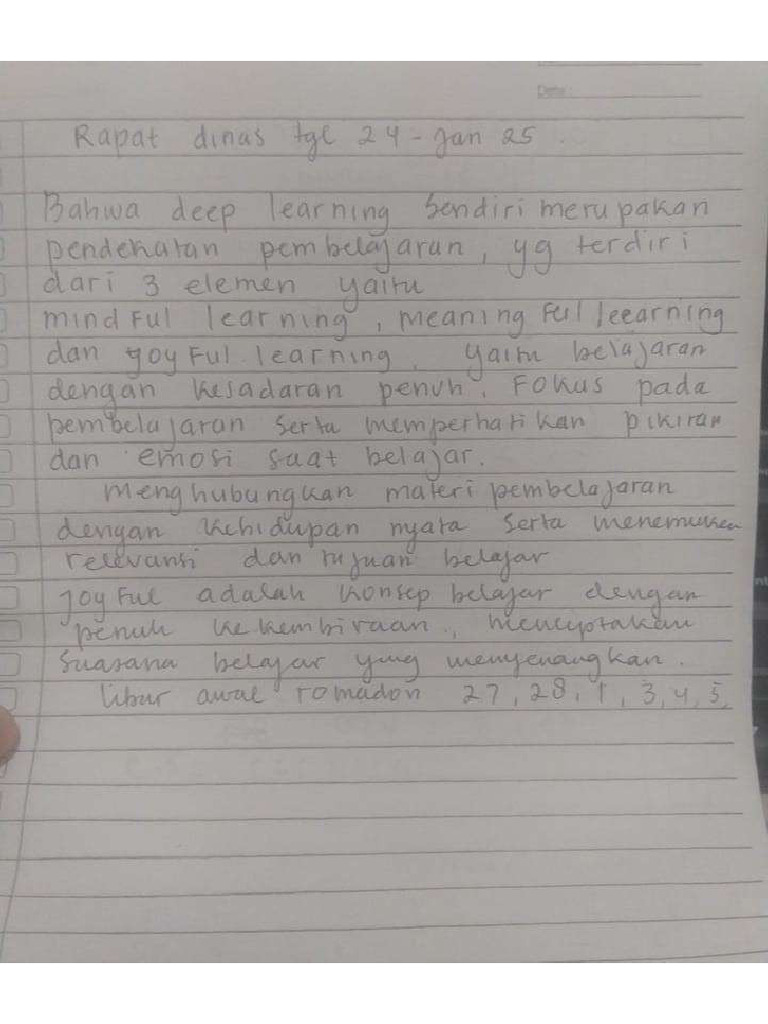 Date:
Rapat dinas tgl 24 - Jan 25.
Bahwa deep learning sendiri merupakan
pendekatan pembelajaran, yg terdiri
dari 3 elemen yaitu
mindful learning, meaning ful leearning
dan yoyful learning, yaitu belajaran
dengan kesadaran penuh, Fokus pada
pembelajaran serta memperhatikan pikiran
dan emosi saat belajar.
menghubungkan materi pembelajaran
dengan kehidupan nyata serta menemukan
relevansi dan tujuan belajar
joyful adalah konsep belajar dengan
penuh kekembiraan, menciptakan
suasana belajar yang menyenangkan.
libur awal romadon 27, 28, 1, 3, 4, 5,